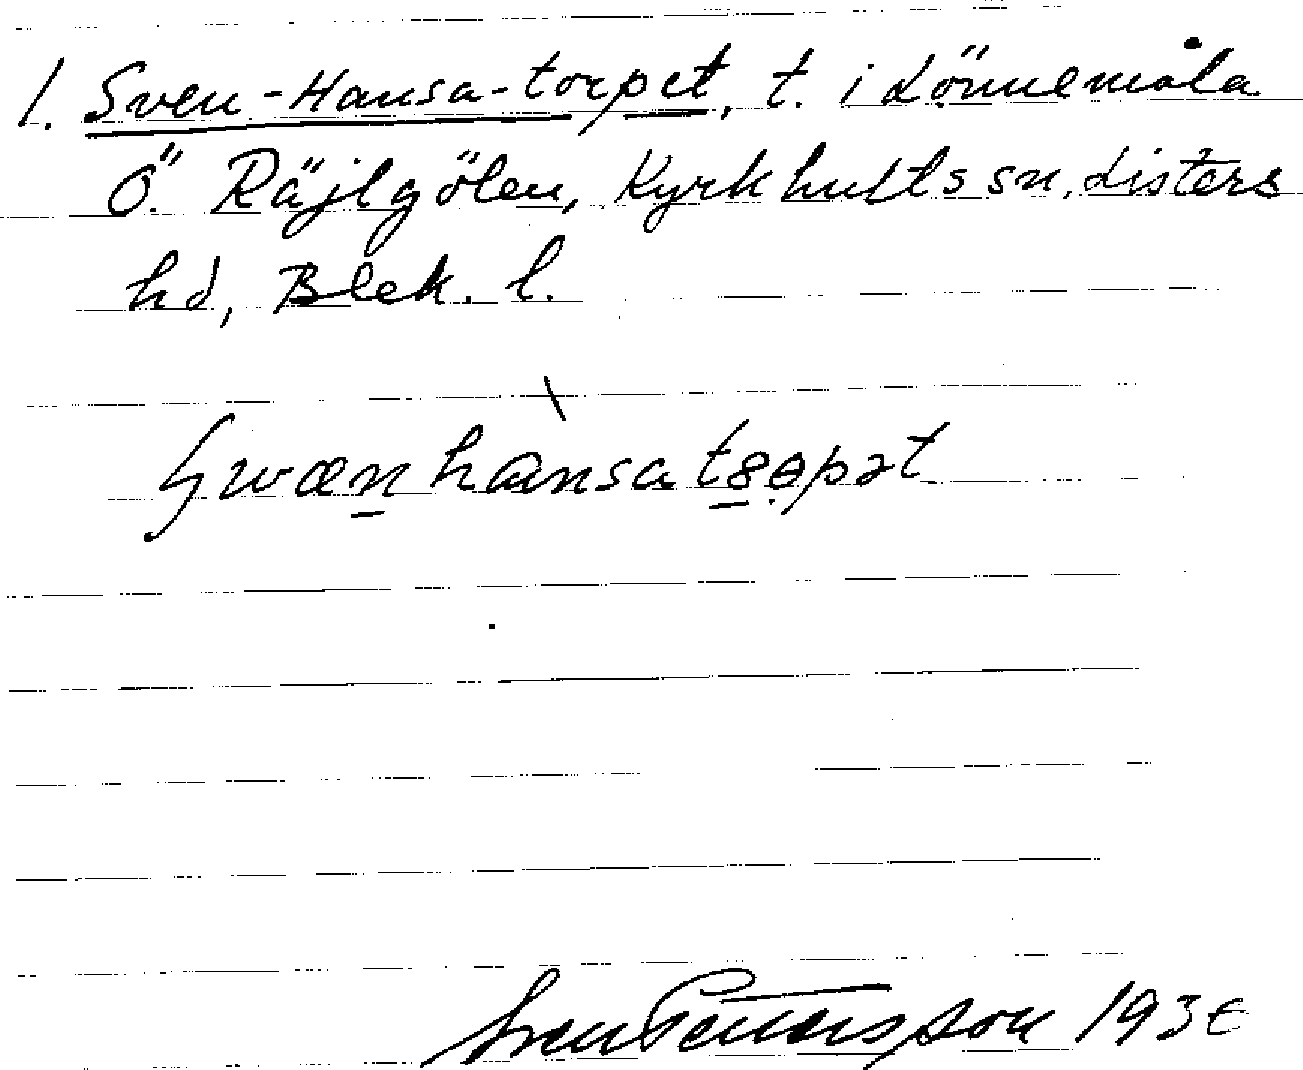 1. Sven-Hansa-torpet, t. i Lönnemåla
Ö. Räjlgölen, Kyrkhults sn, Listers
hd, Blek. l.
Sven Pettersson 1936